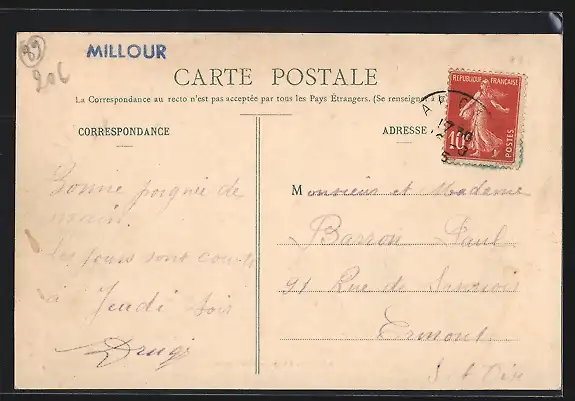 89
206
MILLOUR
CARTE POSTALE
La Correspondance au recto n'est pas acceptée par tous les Pays Étrangers. (Se renseigner à
CORRESPONDANCE
ADRESSE
RÉPUBLIQUE FRANÇAISE
10
POSTES
Bonne poignée de
main.
Les jours sont courts
à Jeudi soir
Monsieur et Madame
Barron Paul
91 Rue de
Ermont
S et Oise